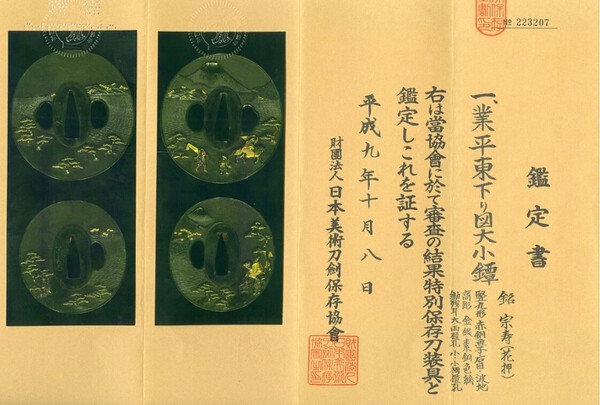 № 223207
鑑定書
一、業平東下り図大小鐔
銘 宗寿（花押）
竪丸形 赤銅魚子石目・波地
高彫 金銀素銅色絵
大両櫃孔 小小柄櫃孔
右は當協會に於て審査の結果特別保存刀装具と
鑑定しこれを証する
平成九年十月八日
財團法人 日本美術刀劍保存協會